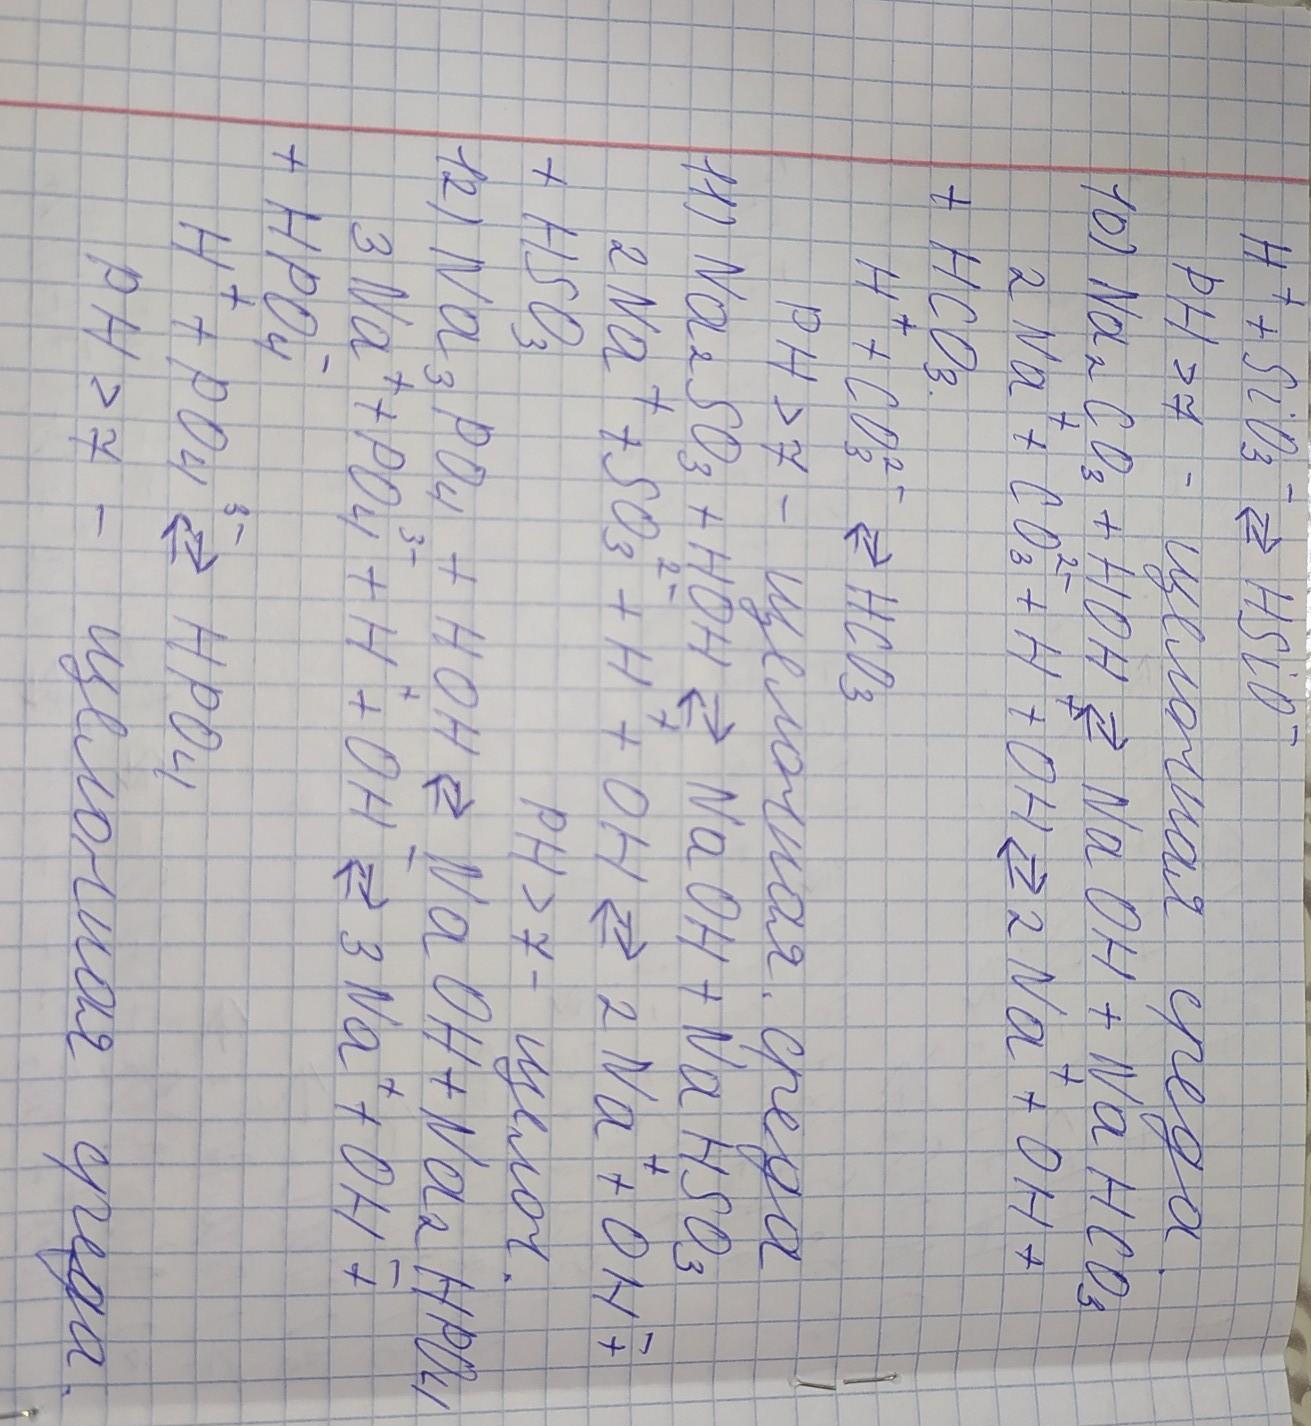 H⁺ + SiO₃⁻ ⇄ HSiO⁻
pH > 7 - щелочная среда.
10) Na₂CO₃ + HOH ⇄ NaOH + NaHCO₃
2Na⁺ + CO₃²⁻ + H⁺ + OH ⇄ 2Na⁺ + OH +
+ HCO₃.
H⁺ + CO₃²⁻ ⇄ HCO₃
pH > 7 - щелочная. среда
11) Na₂SO₃ + HOH ⇄ NaOH + NaHSO₃
2Na⁺ + SO₃²⁻ + H⁺ + OH ⇄ 2Na⁺ + OH⁻ +
+ HSO₃ pH > 7 - щелоч.
12) Na₃PO₄ + HOH ⇄ NaOH + Na₂HPO₄
3Na⁺ + PO₄³⁻ + H⁺ + OH⁻ ⇄ 3Na⁺ + OH⁻ +
+ HPO₄⁻
H⁺ + PO₄³⁻ ⇄ HPO₄
pH > 7 - щелочная среда.